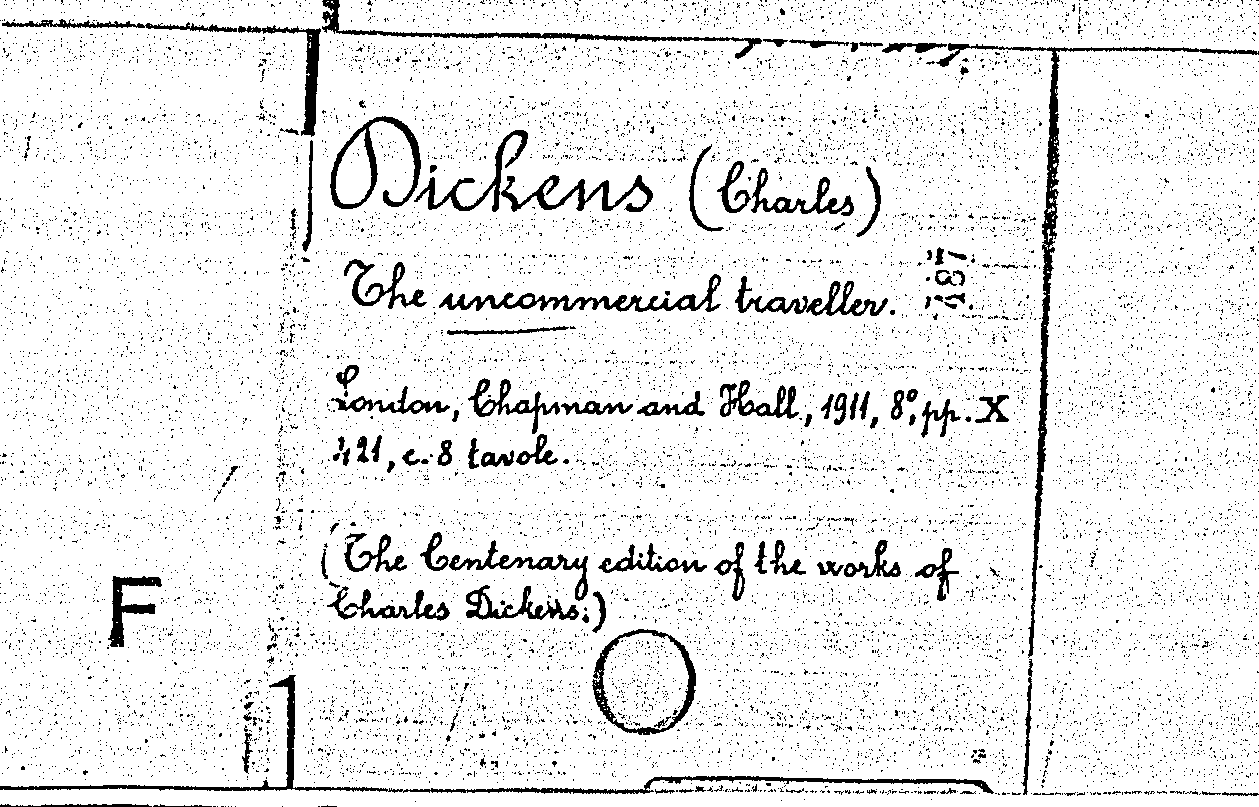 Dickens (Charles)
487
The uncommercial traveller.
London, Chapman and Hall, 1911, 8°, pp. X
421, c. 8 tavole.
(The Centenary edition of the works of
Charles Dickens.)
F